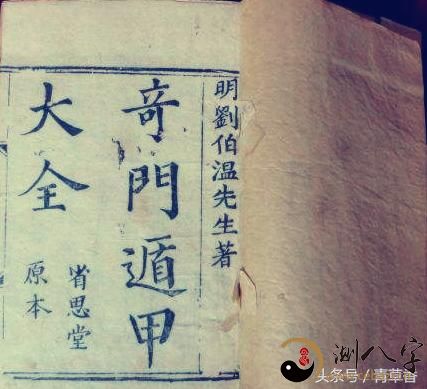 明劉伯温先生著
奇門遁甲
大全
省思堂
原本
測八字
头条号/青草香